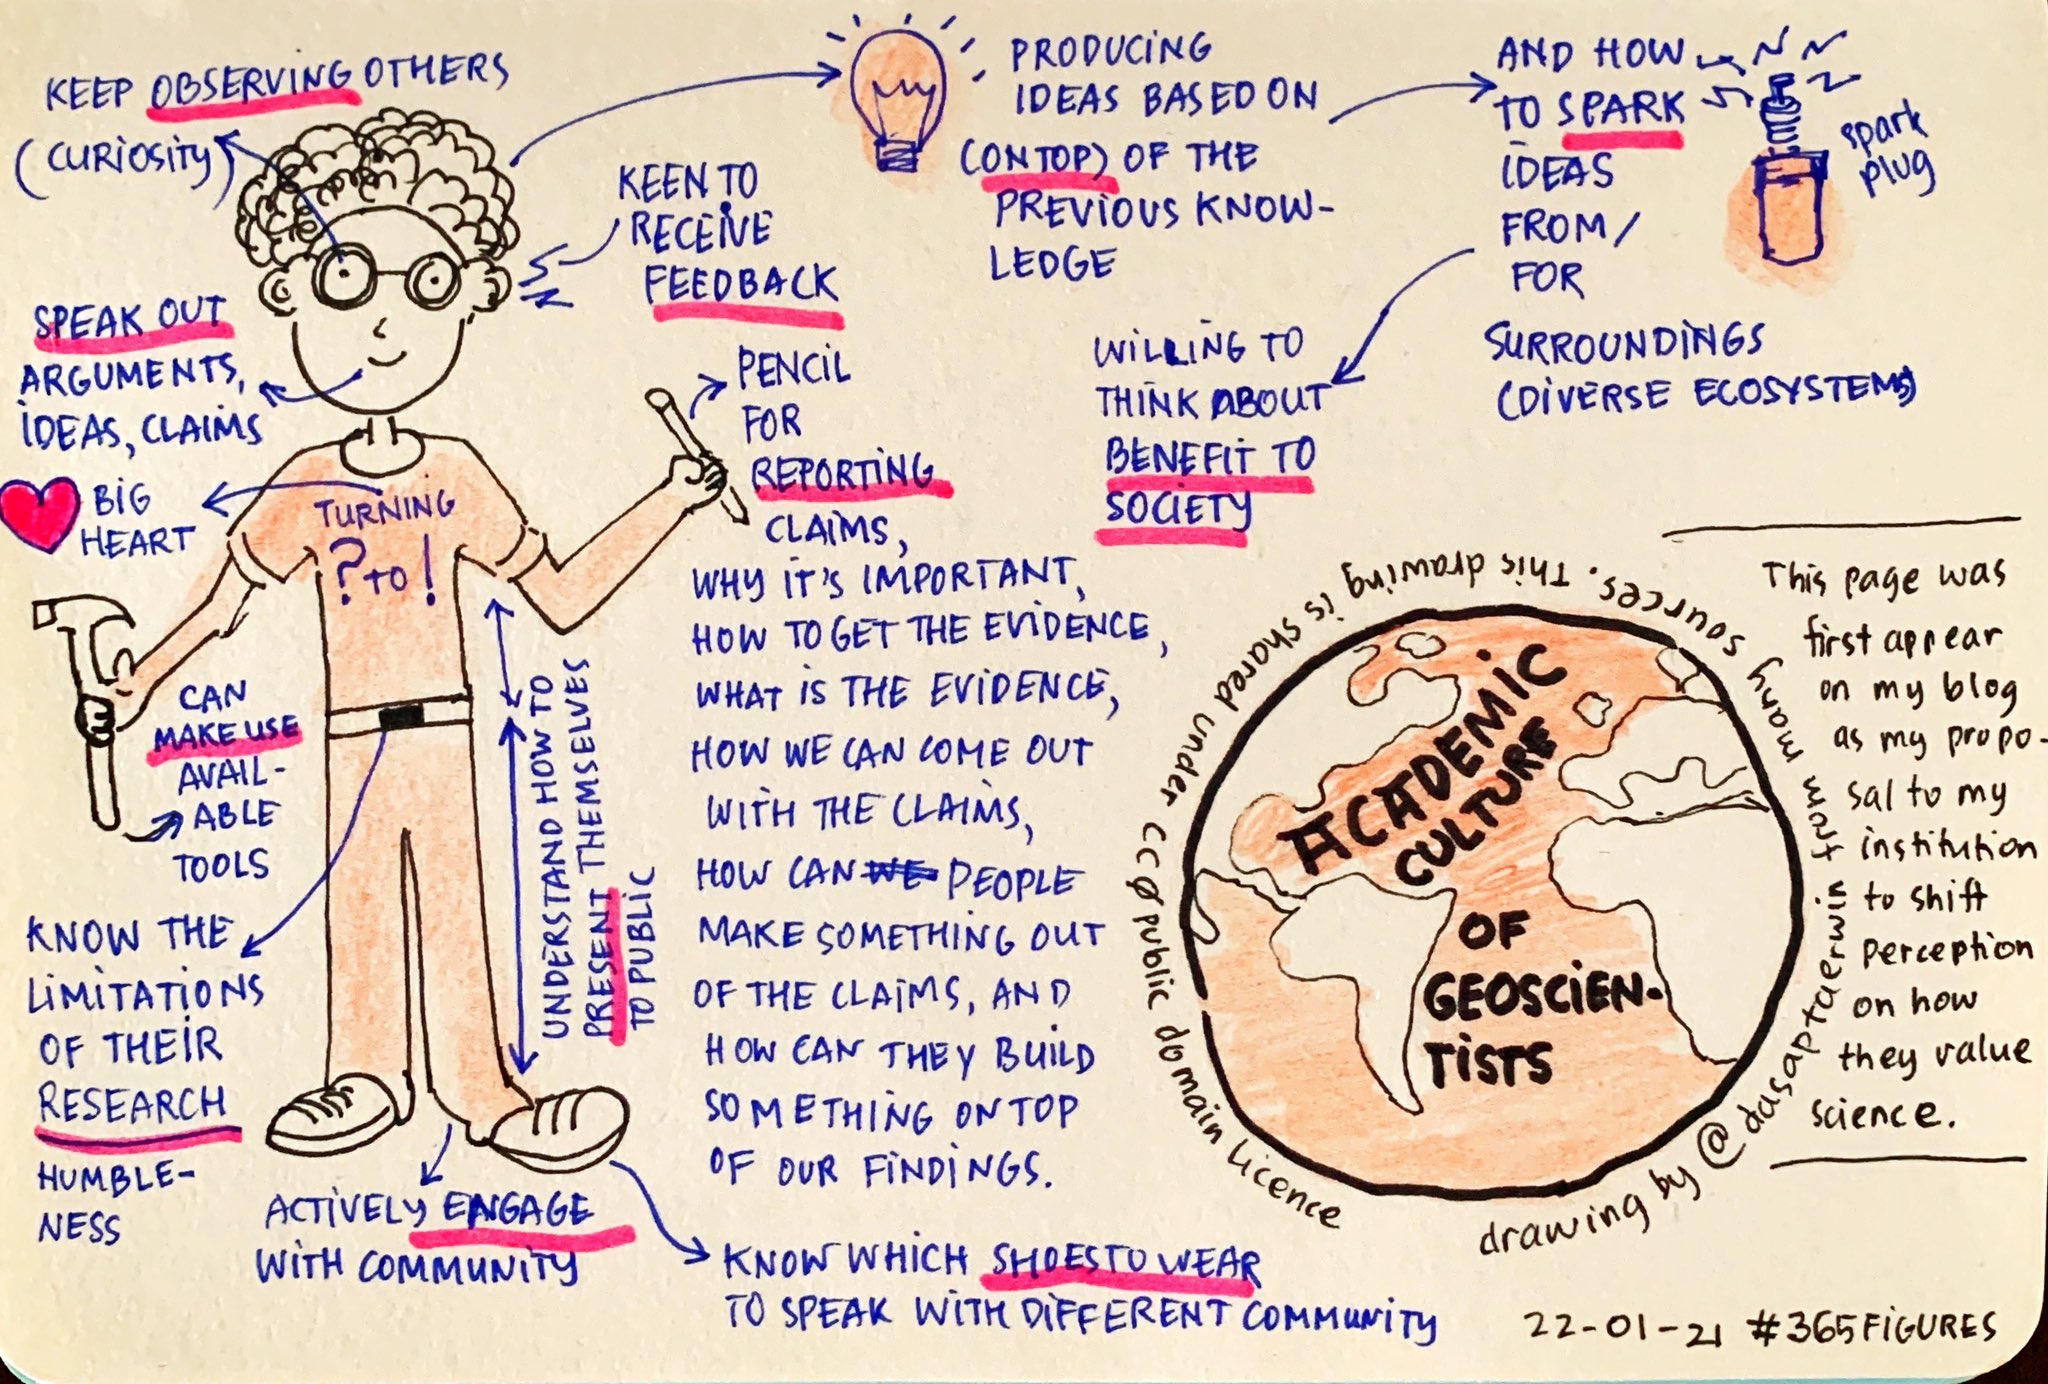 KEEP OBSERVING OTHERS
(CURIOSITY)
SPEAK OUT
ARGUMENTS,
IDEAS, CLAIMS
BIG
HEART
TURNING
? TO !
CAN
MAKE USE
AVAIL-
ABLE
TOOLS
KNOW THE
LIMITATIONS
OF THEIR
RESEARCH
HUMBLE-
NESS
ACTIVELY ENGAGE
WITH COMMUNITY
UNDERSTAND HOW TO
PRESENT THEMSELVES
TO PUBLIC
KEEN TO
RECEIVE
FEEDBACK
PENCIL
FOR
REPORTING
CLAIMS,
WHY IT'S IMPORTANT,
HOW TO GET THE EVIDENCE,
WHAT IS THE EVIDENCE,
HOW WE CAN COME OUT
WITH THE CLAIMS,
HOW CAN WE PEOPLE
MAKE SOMETHING OUT
OF THE CLAIMS, AND
HOW CAN THEY BUILD
SOMETHING ON TOP
OF OUR FINDINGS.
KNOW WHICH SHOES TO WEAR
TO SPEAK WITH DIFFERENT COMMUNITY
PRODUCING
IDEAS BASED ON
(ON TOP) OF THE
PREVIOUS KNOW-
LEDGE
AND HOW
TO SPARK
IDEAS
FROM/
FOR
SURROUNDINGS
(DIVERSE ECOSYSTEMS)
spark
plug
WILLING TO
THINK ABOUT
BENEFIT TO
SOCIETY
ACADEMIC
CULTURE
OF
GEOSCIEN-
TISTS
drawing by @dasaptaerwin from many sources. This drawing is shared under CC0 public domain licence
This page was
first appear
on my blog
as my propo-
sal to my
institution
to shift
perception
on how
they value
science.
22-01-21 #365FIGURES